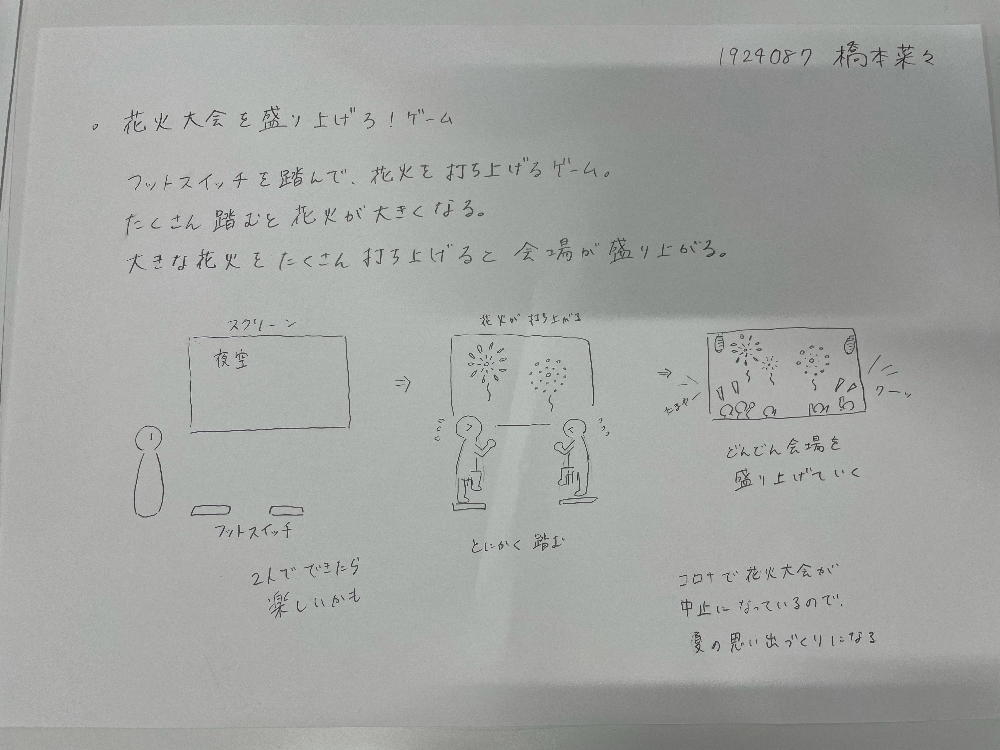 1924087 橋本菜々
。花火大会を盛り上げろ！ゲーム
フットスイッチを踏んで、花火を打ち上げるゲーム。
たくさん踏むと花火が大きくなる。
大きな花火をたくさん打ち上げると会場が盛り上がる。
スクリーン
夜空
フットスイッチ
2人でできたら
楽しいかも
⇒
花火が打ち上がる
とにかく踏む
⇒
たまや
ワーッ
どんどん会場を
盛り上げていく
コロナで花火大会が
中止になっているので、
夏の思い出づくりになる